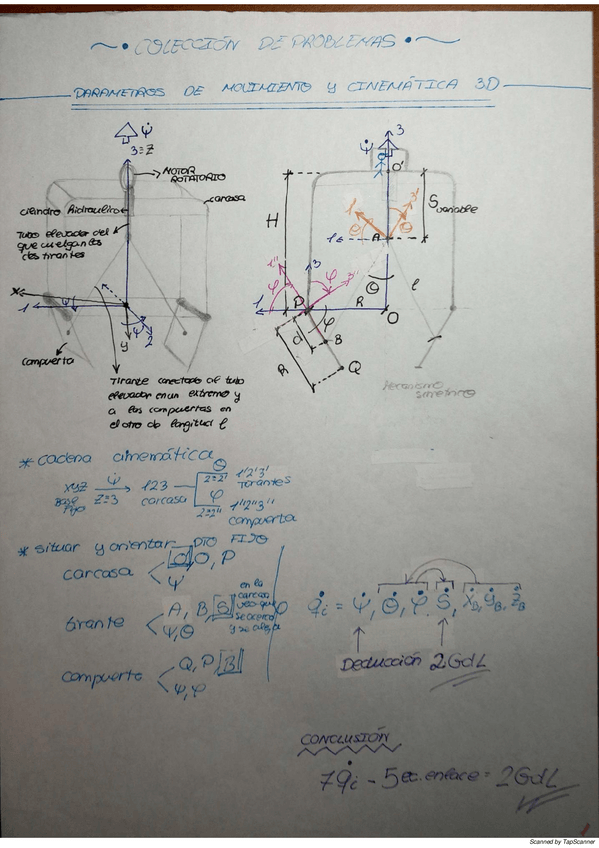 COLECCIÓN DE PROBLEMAS
PARAMETROS DE MOVIMIENTO Y CINEMÁTICA 3D
ψ̇
3≡Z
MOTOR
ROTATORIO
carcasa
cilindro hidraulico
Tubo elevador del
que cuelgan los
dos tirantes
x
1
ψ
ψ
y
2
compuerta
Tirante conectado al tubo
elevador en un extremo y
a las compuertas en
el otro de longitud l
ψ̇
3
O'
H
S variable
1'
3'
θ
θ
1
A
1''
3
φ
3''
φ
θ
l
1
P
R
O
φ
d
B
R
Q
mecanismo
simetrico
* cadena cinemática
xyz
Base
Fijo
ψ̇
Z≡3
123
carcasa
θ
2≡2'
1'2'3'
Tirantes
φ
2≡2''
1''2''3''
compuerta
* situar y orientar
PTO FIJO
carcasa
O', O, P
ψ
tirante
A, B [S]
ψ, θ
en la
carcasa
veo que
se acerca
y se aleja
compuerta
Q, P [B]
ψ, φ
q̇i = ψ̇, θ̇, φ̇, Ṡ, ẋB, ẏB, żB
Deducción 2GdL
CONCLUSIÓN
7q̇i - 5 ec. enlace = 2GdL
1
Scanned by TapScanner